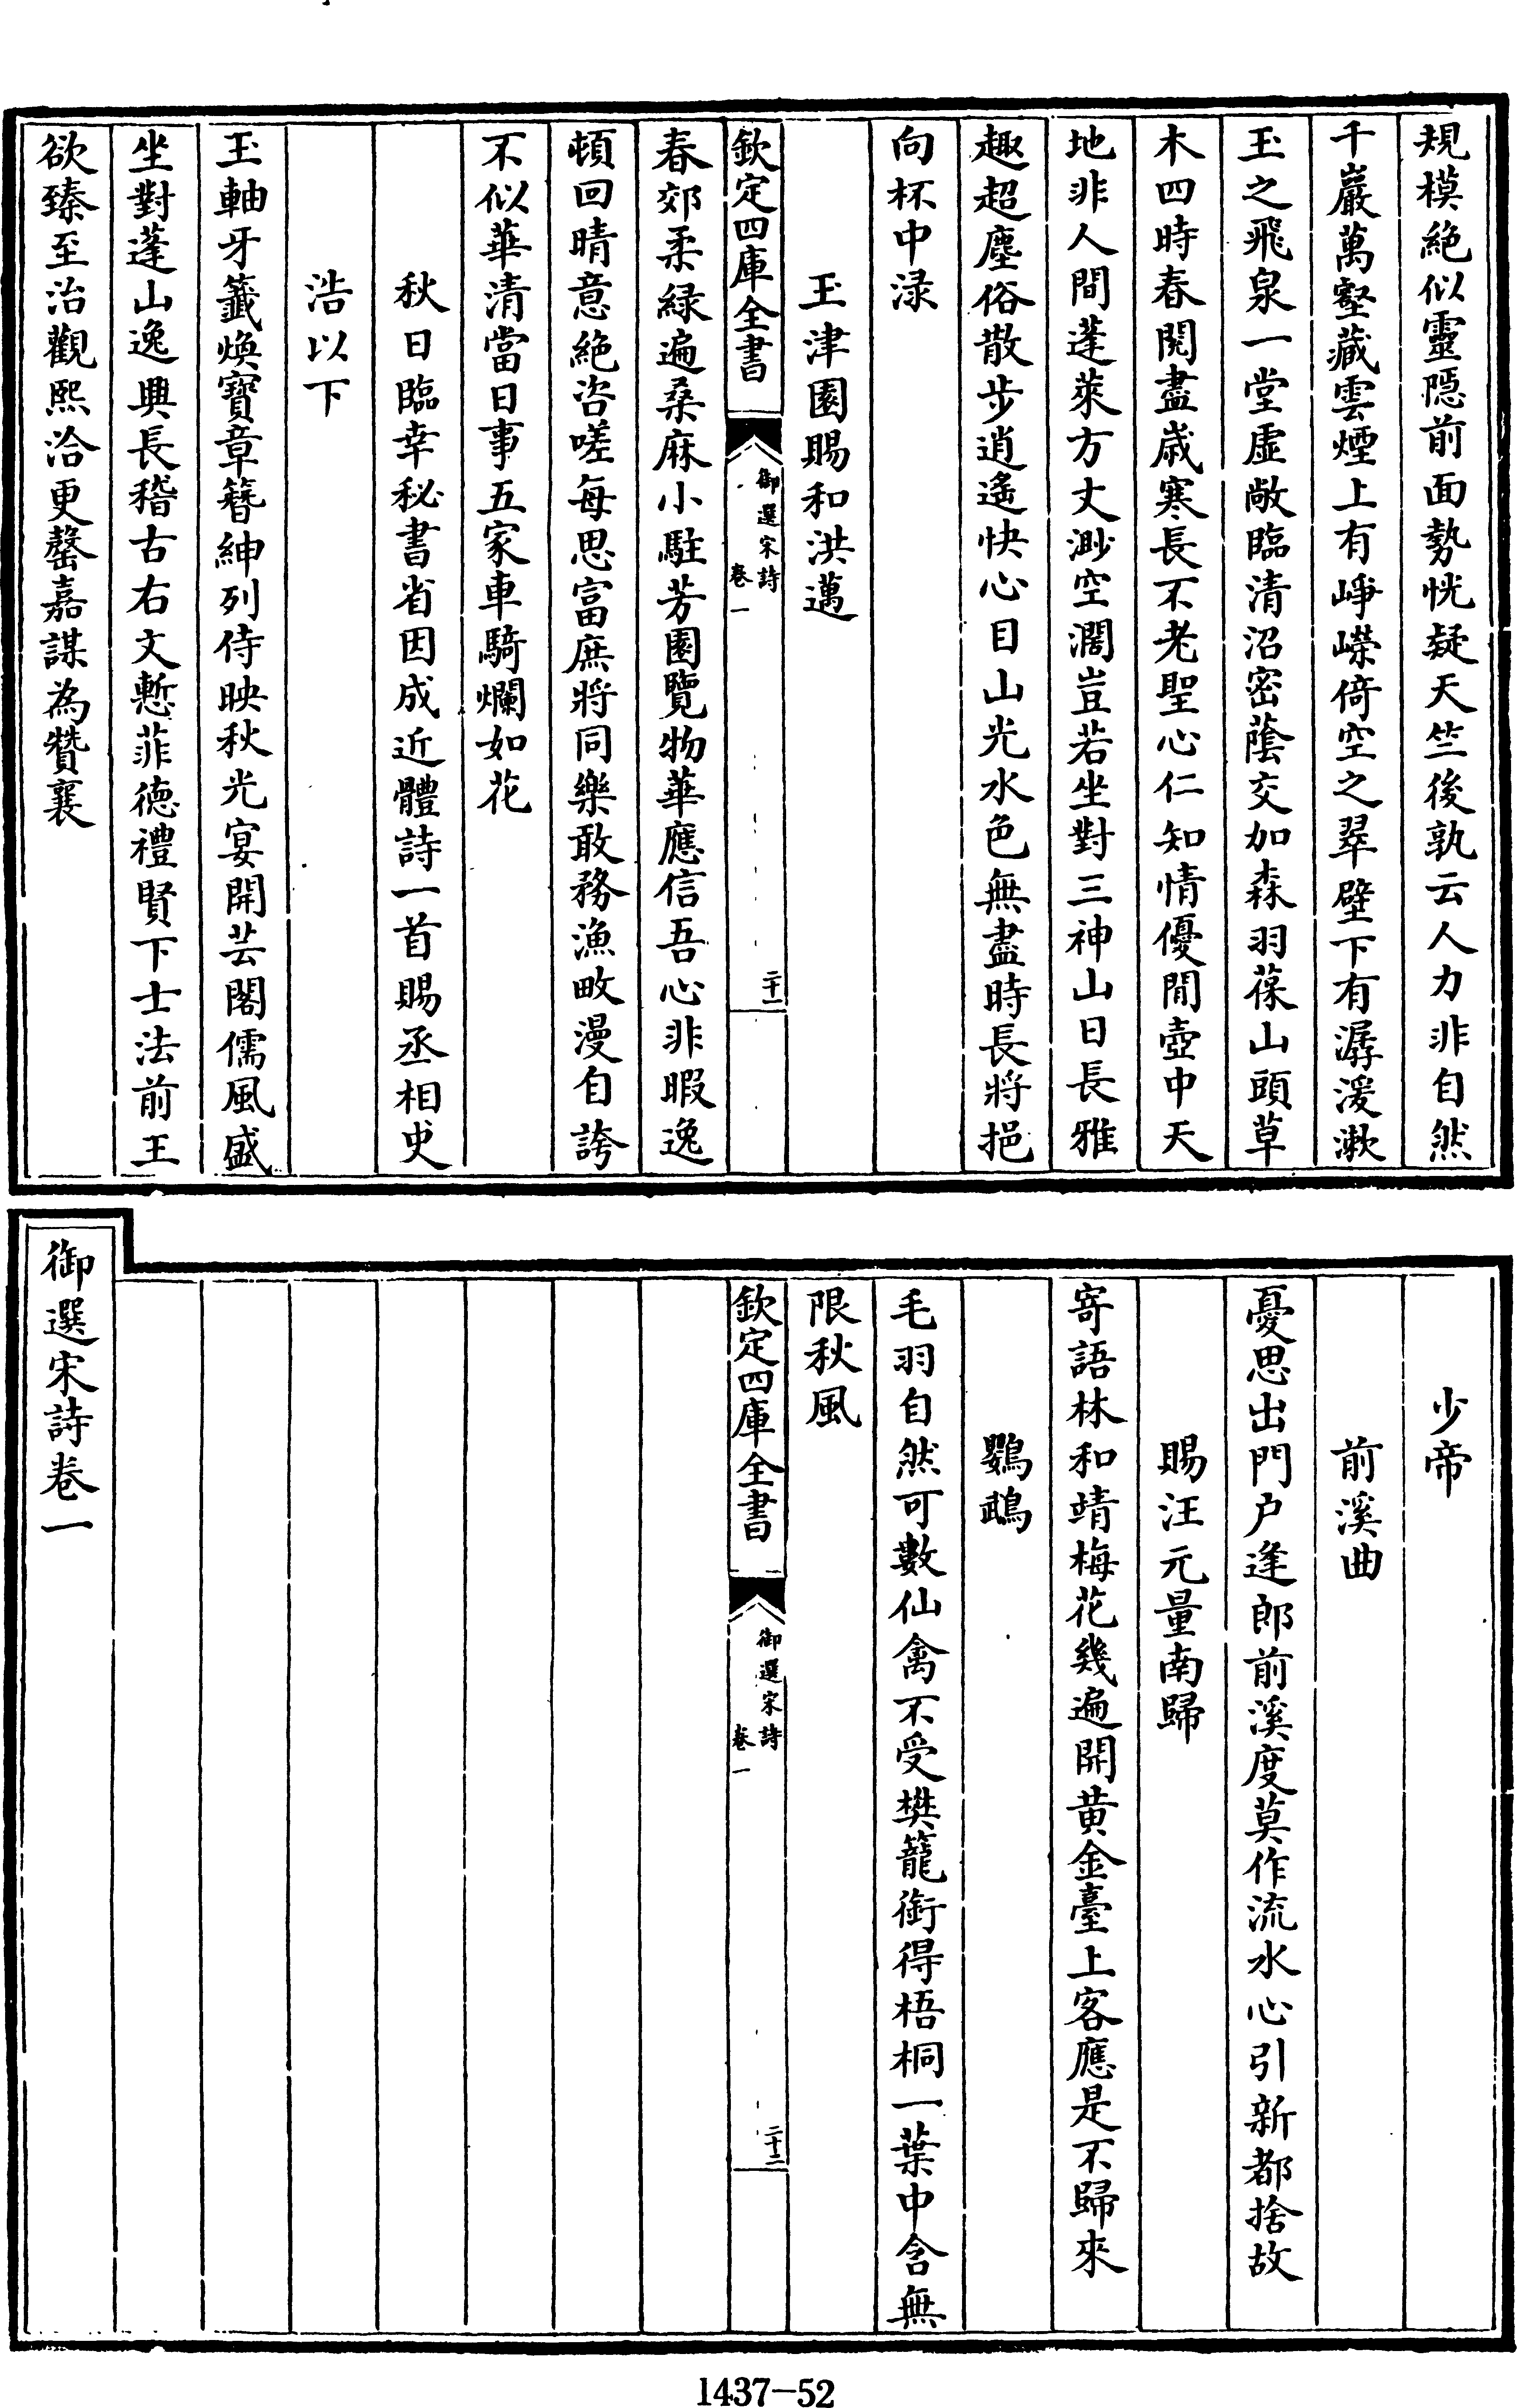 規模絶似靈隠前面勢恍疑天竺後孰云人力非自然
千巖萬壑藏雲煙上有崢嶸倚空之翠壁下有潺湲漱
玉之飛泉一堂虚敞臨清沼密䕃交加森羽葆山頭草
木四時春閱盡歳寒長不老聖心仁知情優閒壺中天
地非人間蓬萊方丈渺空濶豈若坐對三神山日長雅
趣超塵俗散步逍遙快心目山光水色無盡時長將挹
向杯中渌
玉津園賜和洪邁
欽定四庫全書
御選宋詩
卷一
二十一
春郊柔緑遍桑麻小駐芳園覽物華應信吾心非暇逸
頓回晴意絶咨嗟每思富庶將同樂敢務漁畋漫自誇
不似華清當日事五家車騎爛如花
秋日臨幸秘書省因成近體詩一首賜丞相史
浩以下
玉軸牙籤煥寶章簪紳列侍映秋光宴開芸閣儒風盛
坐對蓬山逸興長稽古右文慙菲徳禮賢下士法前王
欲臻至治觀熙洽更罄嘉謀為贊襄
少帝
前溪曲
憂思出門户逢郎前溪度莫作流水心引新都捨故
賜汪元量南歸
寄語林和靖梅花幾遍開黄金臺上客應是不歸來
鸚鵡
毛羽自然可數仙禽不受樊籠銜得梧桐一葉中含無
限秋風
欽定四庫全書
御選宋詩
卷一
二十二
御選宋詩卷一
1437-52